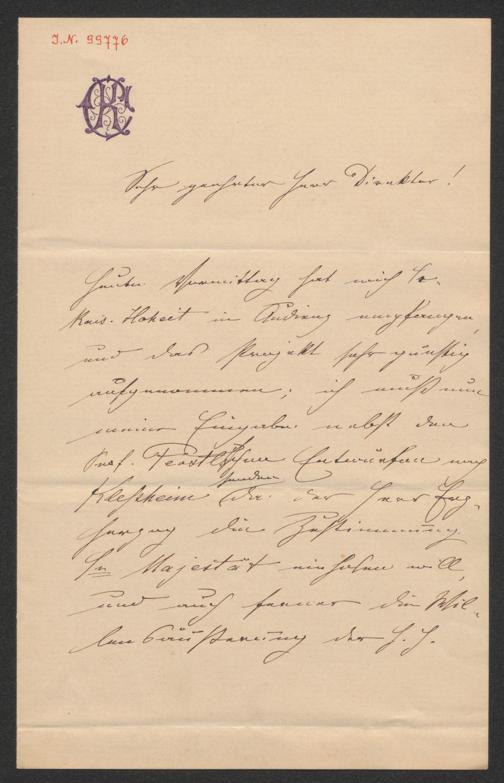 J.N. 99776
Sehr geehrter Herr Direktor!
Heute Vormittag hat mich Se.
Kais. Hoheit in Audienz empfangen,
und das Projekt sehr günstig
aufgenommen; ich muß nun
meine Eingabe nebst den
Prof. Ferstl'schen Entwürfen nach
Kleßheim senden da der Herr Erz-
herzog die Zustimmung
Sr Majestät einholen will,
und auch ferner die Wil-
lensäußerung der H. H.